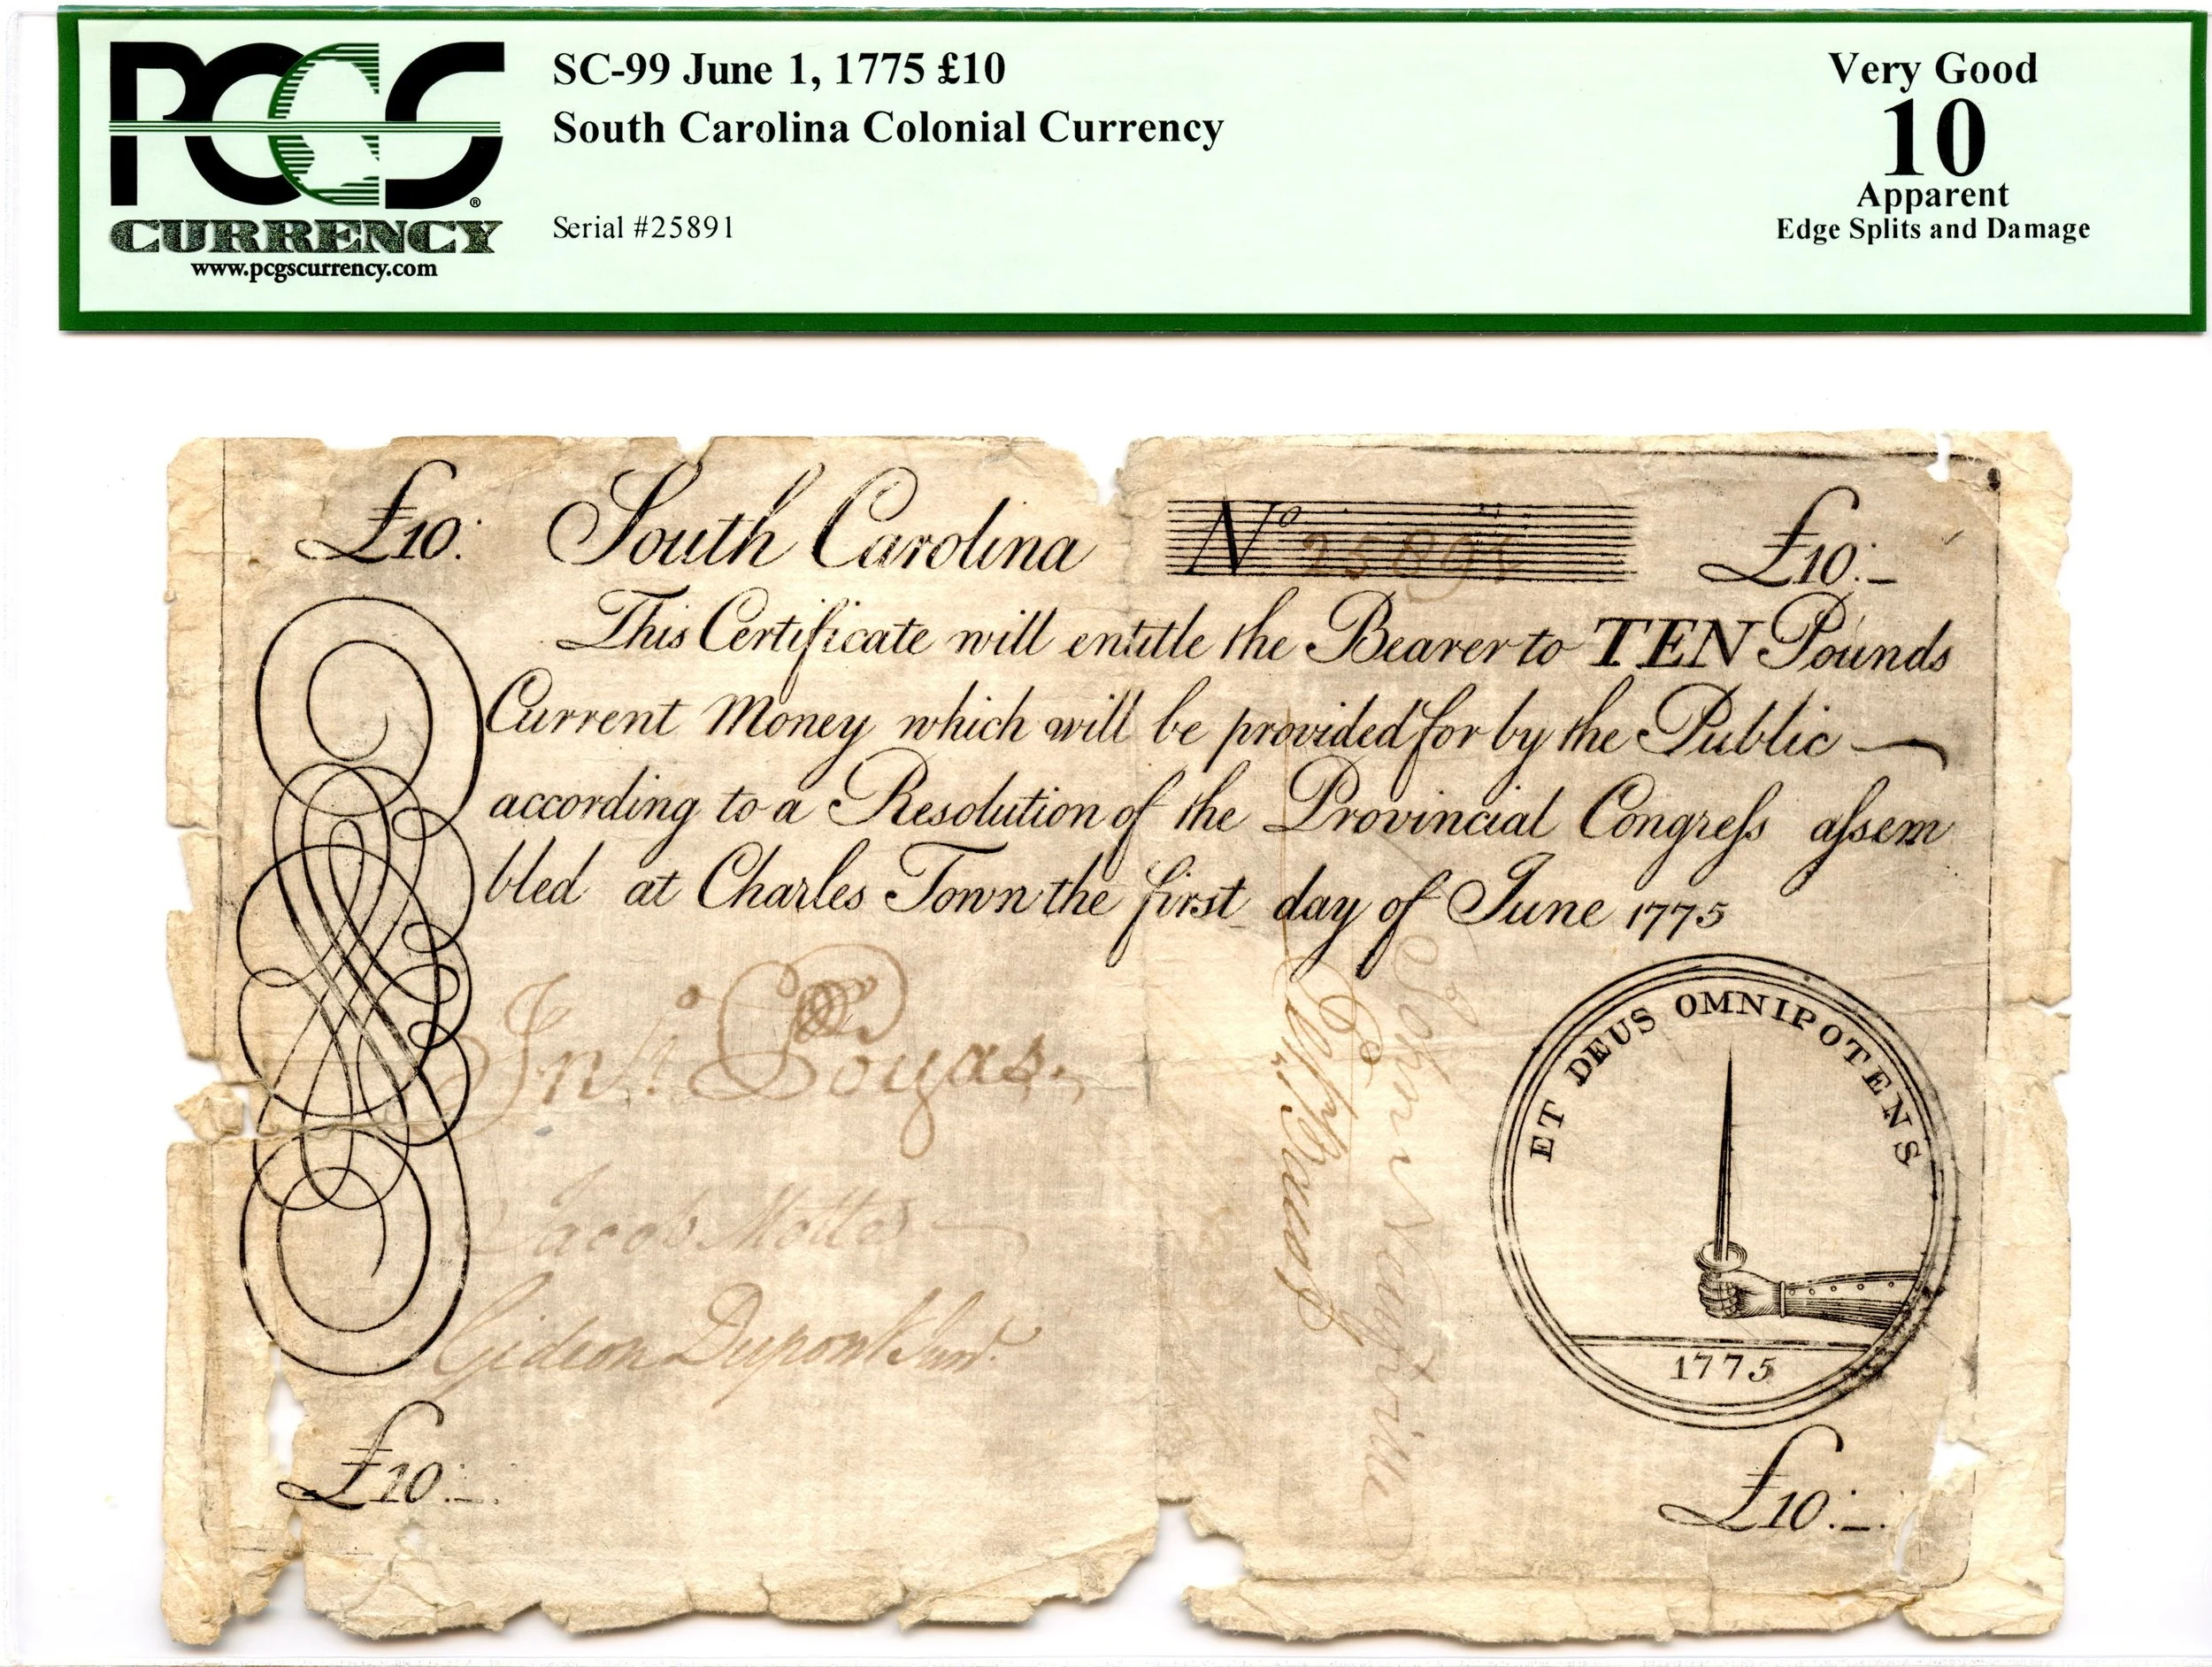 PCGS
CURRENCY
www.pcgscurrency.com
SC-99 June 1, 1775 £10
South Carolina Colonial Currency
Serial #25891
Very Good
10
Apparent
Edge Splits and Damage
£10: South Carolina No 25891 £10:-
This Certificate will entitle the Bearer to TEN Pounds
Current Money which will be provided for by the Public
according to a Resolution of the Provincial Congreſs aſsem
bled at Charles Town the first day of June 1775
Jn.o Pouyas.
Jacob Motte
Gideon Dupont Junr.
ET DEUS OMNIPOTENS
1775
£10:-. £10:-.